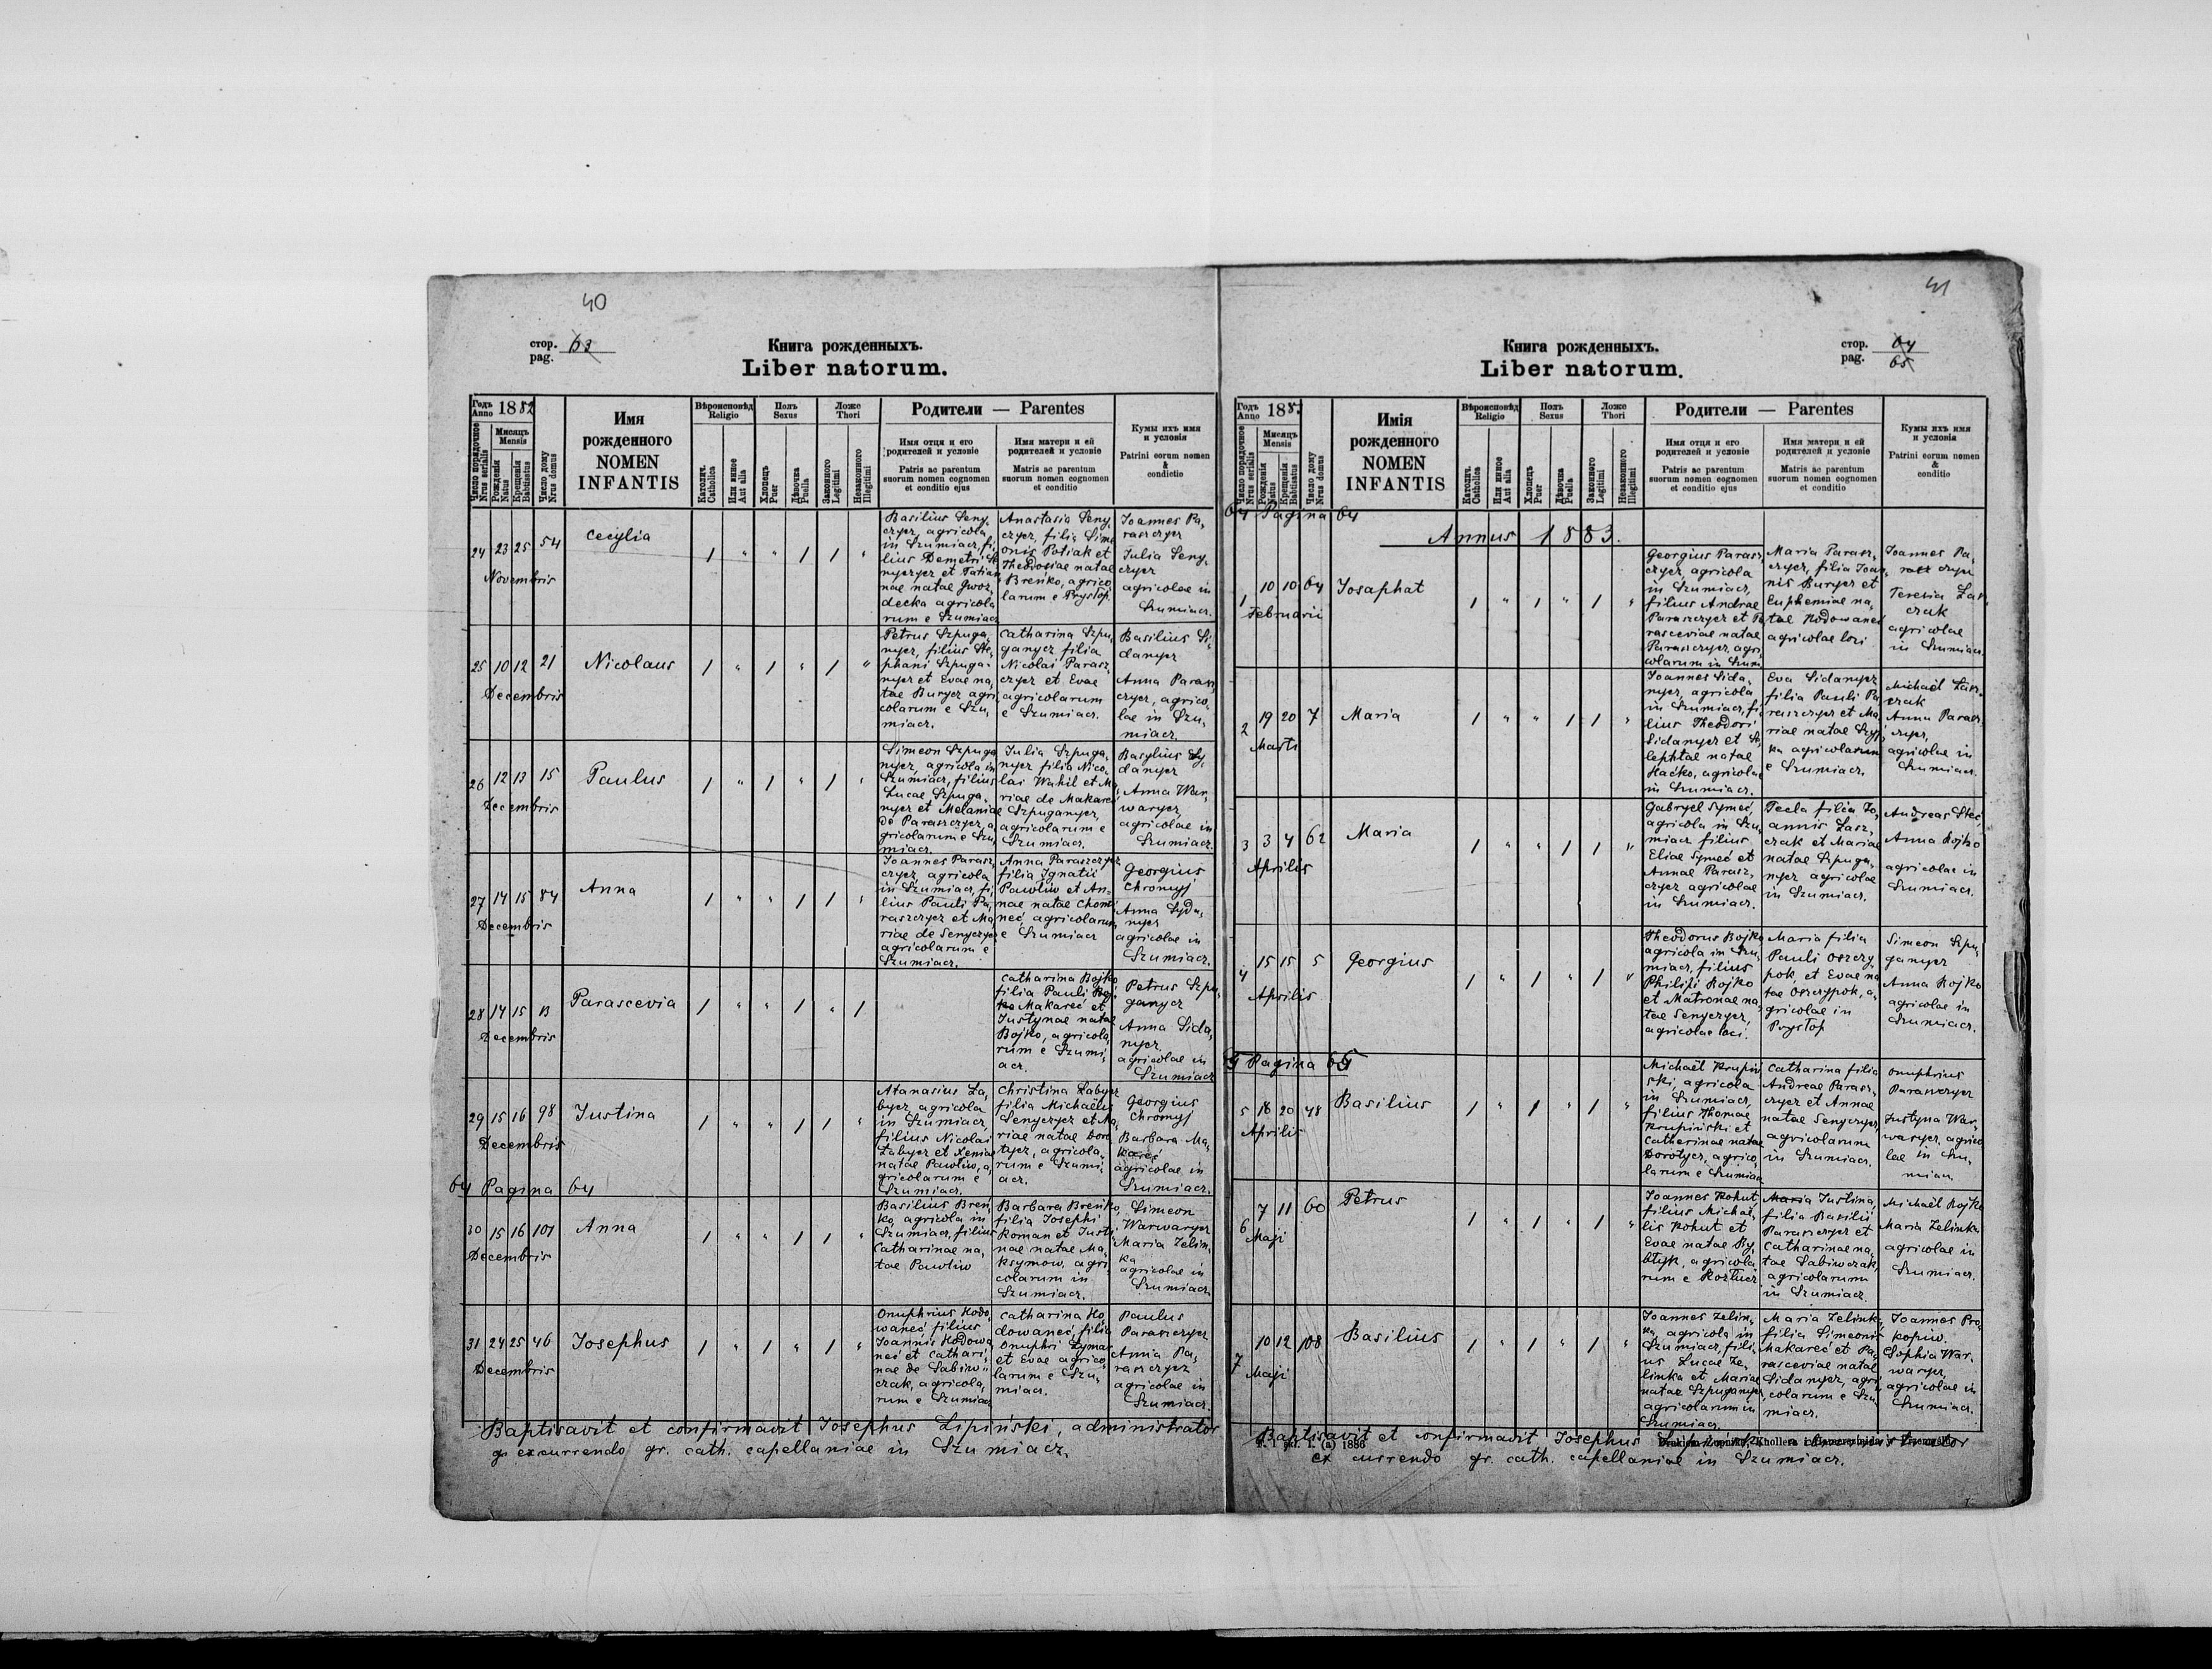 40
стор. 63
pag.
Книга рожденныхъ.
Liber natorum.
Годъ Anno 1882
Мисяцъ Mensis
Число порядочное Nrus serialis
Рожденія Natus
Крещенія Babtisatus
Число дому Nrus domus
Имя
рожденного
NOMEN
INFANTIS
Вѣроисповѣд
Religio
Католич. Catholica
Или инное Aut alia
Полъ
Sexus
Хлопець Puer
Дѣвочка Puella
Ложе
Thori
Законного Legitimi
Незаконного Illegitimi
Родители — Parentes
Имя отця и его
родителей и условіе
Patris ac parentum
suorum nomen cognomen
et conditio ejus
Имя матери и ей
родителей и условіе
Matris ac parentum
suorum nomen cognomen
et conditio
Кумы ихъ имя
и условія
Patrini eorum nomen
&
condictio
24 23 25 54
Novembris
Cecylia
1 " " 1 1 "
Basilius Seny,
czycz, agricola
in Szumiacz, fi,
lius Demetri Se
nyczycz et Tatian
nae natae Gwoz,
decka agricola
rum e Szumiacz
Anastasia Seny,
czycz, filia Sime
onis Potiak et
Theodosiae natae
Breńko, agrico
larum e Przysłop.
Joannes Pa,
raszczycz
Julia Seny,
czycz
agricolae in
Szumiacz.
25 10 12 21
Decembris
Nicolaus
1 " 1 " 1 "
Petrus Szpuga,
nycz, filius Ste,
phani Szpuga-
nycz et Evae na,
tae Burycz agri
colarum e Szu,
miacz.
Catharina Szpu,
ganycz filia
Nicolai Parasz,
czycz et Evae
agricolarum
e Szumiacz.
Basilius Si,
danycz
Anna Parasz,
czycz, agrico,
lae in Szu,
miacz.
26 12 13 15
Decembris
Paulus
1 " 1 " 1 "
Simeon Szpuga
nycz, agricola in
Szumiacz, filius
Lucae Szpuga,
nycz et Melaniae
de Paraszczycz, a
gricolarum e Szu,
miacz.
Julia Szpuga,
nycz filia Nico,
lai Wahil et Ma,
riae de Makareć
Szpuganycz,
agricolarum e
Szumiacz.
Basylius Sy,
danycz
Anna War,
warycz
agricolae in
Szumiacz.
27 14 15 84
Decembris
Anna
1 " " 1 1 "
Joannes Parasz,
czycz, agricola
in Szumiacz, fi,
lius Pauli Pa,
raszczycz et Ma
riae de Senyczycz
agricolarum e
Szumiacz.
Anna Paraszczycz
filia Ignatii
Pawliw et An,
nae natae Chomi
neć, agricolarum
e Szumiacz
Georgius
Chromyj
Anna Syda,
nycz
agricolae in
Szumiacz.
28 14 15 13
Decembris
Parascevia
1 " " 1 " 1
Catharina Bojko
filia Pauli Boj
ko Makareć et
Justynae natae
Bojko, agricola,
rum e Szumi,
acz.
Petrus Szpu,
ganycz
Anna Sida,
nycz
agricolae in
Szumiacz
29 15 16 98
Decembris
Justina
1 " " 1 1 "
Atanasius Ła,
bycz, agricola
in Szumiacz,
filius Nicolai
Łabycz et Xeniae
natae Pawliw, a,
gricolarum e
Szumiacz.
Christina Łabycz
filia Michaëlis
Senyczycz et Ma,
riae natae Doro
tycz, agricola,
rum e Szumi,
acz.
Georgius
Chromyj
Barbara Ma,
kareć
agricolae in
Szumiacz.
64 Pagina 64
30 15 16 101
Decembris
Anna
1 " " 1 1 "
Basilius Breń,
ko, agricola in
Szumiacz, filius
Catharinae na,
tae Pawliw
Barbara Breńko,
filia Josephi
Roman et Justi
nae natae Ma,
ksymow, agri
colarum in
Szumiacz.
Simeon
Warwarycz
Maria Zelin,
ka
agricolae in
Szumiacz
31 24 25 46
Decembris
Josephus
1 " 1 " 1 "
Onuphrius Hodo,
waneć, filius
Joannis Hodowa
neć et Cathari,
nae de Babiw,,
czak, agricola,
rum e Szumiacz
Catharina Ho,
dowaneć, filia
Onuphri Zymar
et Evae agrico,
larum e Szu,
miacz.
Paulus
Paraszczycz
Anna Pa,
raszczycz
agricolae in
Szumiacz.
Baptisavit et confirmavit Josephus Lipiński, administrator
excurrendo gr. cath. capellaniae in Szumiacz.
41
стор. 64
pag. 65
Книга рожденныхъ.
Liber natorum.
Годъ Anno 188
Мисяцъ Mensis
Число порядочное Nrus serialis
Рожденія Natus
Крещенія Babtisatus
Число дому Nrus domus
Имія
рожденного
NOMEN
INFANTIS
Вѣроисповѣд
Religio
Католич. Catholica
Или инное Aut alia
Полъ
Sexus
Хлопець Puer
Дѣвочка Puella
Ложе
Thori
Законного Legitimi
Незаконного Illegitimi
Родители — Parentes
Имя отця и его
родителей и условіе
Patris ac parentum
suorum nomen cognomen
et conditio ejus
Имя матери и ей
родителей и условіе
Matris ac parentum
suorum nomen cognomen
et conditio
Кумы ихъ имя
и условія
Patrini eorum nomen
&
conditio
64 Pagina 64
Annus 1883.
1 10 10 64
Februarii
Josaphat
1 " 1 " 1 "
Georgius Parasz,
czycz, agricola
in Szumiacz,
filius Andrae
Paraszczycz et Pa
rasceviae natae
Paraszczycz, agri,
colarum in Szum
Maria Parasz,
czycz, filia Joan,
nis Burycz et
Euphemiae na,
tae Hodowaneć
agricolae loci
Joannes Pa,
raszczycz
Teresia Łasz,
czak
agricolae
in Szumiacz.
2 19 20 7
Marti
Maria
1 " " 1 1 "
Joannes Sida,
nycz, agricola
in Szumiacz, fi,
lius Theodori
Sidanycz et
natae
Haćko, agricolae
in Szumiacz.
Eva Sidanycz
filia Pauli Pa,
raszczycz et Ma,
riae natae
agricolarum
e Szumiacz.
Michaël Łasz,
czak
Anna Parasz,
czycz,
agricolae in
Szumiacz.
3 3 4 62
Aprilis
Maria
1 " " 1 1 "
Gabryel Symeć,
agricola in Szu,
miacz filius
Eliae Symeć et
Annae Parasz,
czycz agricolae
in Szumiacz.
Tecla filia Jo,
annis Łasz,
czak et Mariae
natae Szpuga,
nycz agricolae
in Szumiacz.
Andreas Steć,
Anna Bojko
agricolae in
Szumiacz.
4 15 15 5
Aprilis
Georgius
1 " 1 " 1 "
Theodorus Bojko
agricola in Szu,
miacz, filius
Philipi Bojko
et Matronae na,
tae Senyczycz,
agricolae loci.
Maria filia
Pauli Oszczy
pok, et Evae na
tae Oszczypok, a,
gricolae in
Przysłop
Simeon Szpu,
ganycz
Anna Bojko
agricolae in
Szumiacz.
Pagina 65
5 18 20 48
Aprilis
Basilius
1 " 1 " 1 "
Michaël Krupiń
ski, agricola
in Szumiacz,
filius Thomae
Krupiński et
Catherinae natae
Dorotycz, agrico,
larum e Szumiacz
Catharina filia
Andreae Parasz,
czycz et Annae
natae Senyczycz,
agricolarum
in Szumiacz.
Onuphrius
Paraszczycz
Justyna War,
warycz, agrico
lae in Szu,
miacz
6 7 11 60
Maji
Petrus
1 " 1 " 1 "
Joannes Kohut
filius Michaë,
lis Kohut et
Evae natae By,
błyk, agricola,
rum e Rozłucz
Maria Justina,
filia Basilii
Paraszczycz et
Catharinae na,
tae Babiwczak,
agricolarum
in Szumiacz.
Michaël Bojko
Maria Zelinka
agricolae in
Szumiacz.
7 10 12 108
Maji
Basilius
1 " 1 " 1 "
Joannes Zelin,
ka, agricola in
Szumiacz, fili,
us Lucae Ze,
linka et Mariae
natae Szpuganycz
agricolarum in
Szumiacz.
Maria Zelinka,
filia Simeonis
Makareć et Pa,
rasceviae natae
Sidanycz, agri
colarum e Szu
miacz.
Joannes Pro,
kopiw.
Sophia War,
warycz,
agricolae in
Szumiacz.
Baptisavit et confirmavit Josephus Lipiński administrator
(a) 1886
ex currendo gr. cath. capellaniae in Szumiacz.